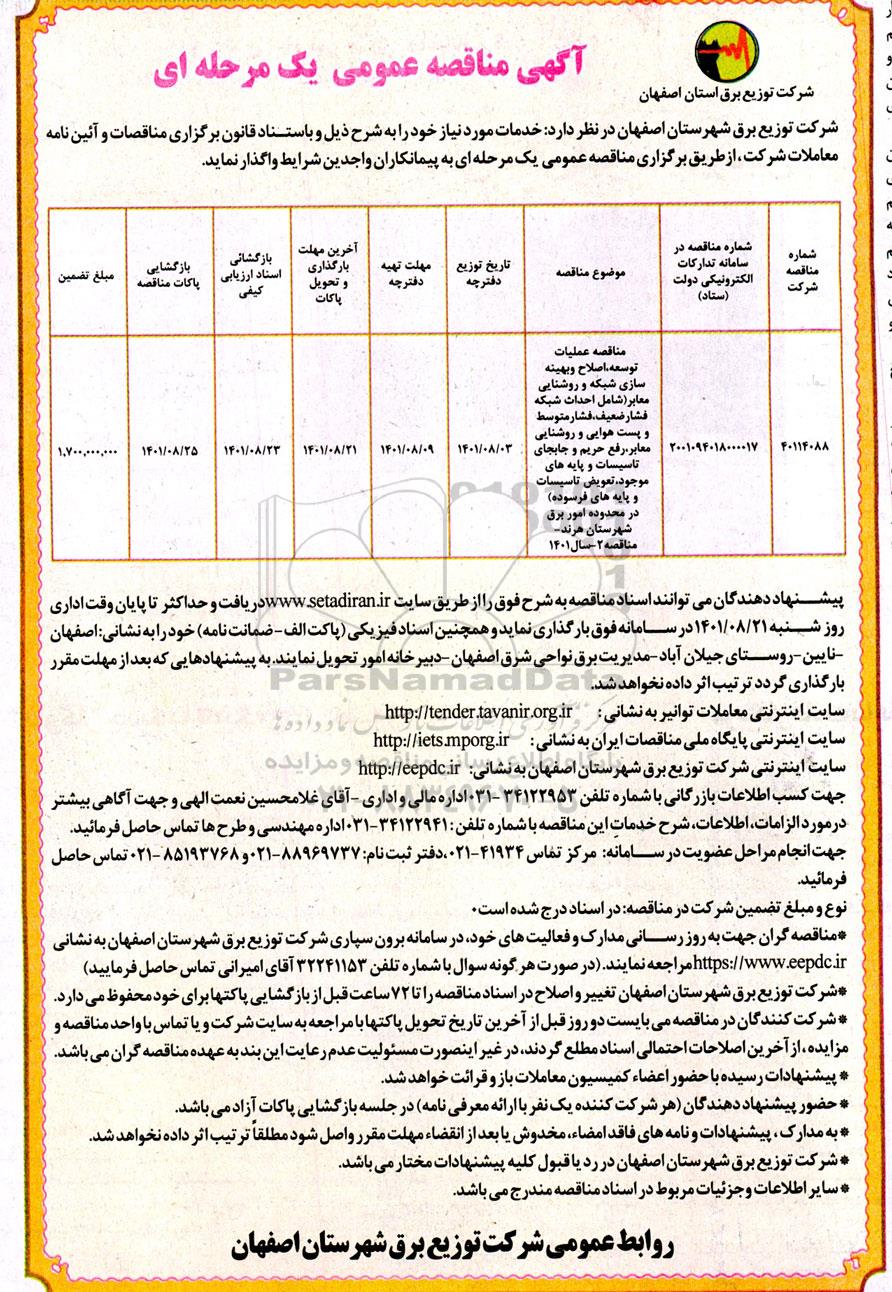 آگهی مناقصه عمومی یک مرحله ای
شرکت توزیع برق استان اصفهان
شرکت توزیع برق شهرستان اصفهان در نظر دارد: خدمات مورد نیاز خود را به شرح ذیل و باستناد قانون برگزاری مناقصات و آئین نامه
معاملات شرکت ، از طریق برگزاری مناقصه عمومی یک مرحله ای به پیمانکاران واجدین شرایط واگذار نماید.
شماره
مناقصه
شرکت
شماره مناقصه در
سامانه تدارکات
الکترونیکی دولت
(ستاد)
موضوع مناقصه
تاریخ توزیع
دفترچه
مهلت تهیه
دفترچه
آخرین مهلت
بارگذاری
و تحویل
پاکات
بازگشائی
اسناد ارزیابی
کیفی
بازگشایی
پاکات مناقصه
مبلغ تضمین
۴۰۱۱۴۰۸۸
۲۰۰۱۰۹۴۰۱۸۰۰۰۰۱۷
مناقصه عملیات
توسعه،اصلاح وبهینه
سازی شبکه و روشنایی
معابر(شامل احداث شبکه
فشارضعیف،فشارمتوسط
و پست هوایی و روشنایی
معابر،رفع حریم و جابجای
تاسیسات و پایه های
موجود،تعویض تاسیسات
و پایه های فرسوده)
در محدوده امور برق
شهرستان هرند-
مناقصه۲-سال۱۴۰۱
۱۴۰۱/۰۸/۰۳
۱۴۰۱/۰۸/۰۹
۱۴۰۱/۰۸/۲۱
۱۴۰۱/۰۸/۲۳
۱۴۰۱/۰۸/۲۵
۱,۷۰۰,۰۰۰,۰۰۰
پیشنهاد دهندگان می توانند اسناد مناقصه به شرح فوق را از طریق سایت www.setadiran.ir دریافت و حداکثر تا پایان وقت اداری
روز شنبه ۱۴۰۱/۰۸/۲۱ در سامانه فوق بارگذاری نماید و همچنین اسناد فیزیکی (پاکت الف - ضمانت نامه) خود را به نشانی: اصفهان
-نایین-روستای جیلان آباد-مدیریت برق نواحی شرق اصفهان -دبیرخانه امور تحویل نمایند. به پیشنهادهایی که بعد از مهلت مقرر
بارگذاری گردد ترتیب اثر داده نخواهد شد.
ParsNamadData
سایت اینترنتی معاملات توانیر به نشانی : http://tender.tavanir.org.ir
سایت اینترنتی پایگاه ملی مناقصات ایران به نشانی : http://iets.mporg.ir
سایت اینترنتی شرکت توزیع برق شهرستان اصفهان به نشانی: http://eepdc.ir
پایگاه اطلاع رسانی مناقصه و مزایده
جهت کسب اطلاعات بازرگانی با شماره تلفن ۳۴۱۲۲۹۵۳ -۰۳۱ اداره مالی و اداری -آقای غلامحسین نعمت الهی و جهت آگاهی بیشتر
در مورد الزامات، اطلاعات، شرح خدمات این مناقصه با شماره تلفن : ۳۴۱۲۲۹۴۱ -۰۳۱ اداره مهندسی و طرح ها تماس حاصل فرمائید.
جهت انجام مراحل عضویت در سامانه: مرکز تماس ۴۱۹۳۴-۰۲۱، دفتر ثبت نام: ۸۸۹۶۹۷۳۷-۰۲۱ و ۸۵۱۹۳۷۶۸ -۰۲۱ تماس حاصل
فرمائید.
نوع و مبلغ تضمین شرکت در مناقصه: در اسناد درج شده است۰
*مناقصه گران جهت به روز رسانی مدارک و فعالیت های خود، در سامانه برون سپاری شرکت توزیع برق شهرستان اصفهان به نشانی
https://www.eepdc.ir مراجعه نمایند. (در صورت هر گونه سوال با شماره تلفن ۳۲۲۴۱۱۵۳ آقای امیرانی تماس حاصل فرمایید)
*شرکت توزیع برق شهرستان اصفهان تغییر و اصلاح در اسناد مناقصه را تا ۷۲ ساعت قبل از بازگشایی پاکتها برای خود محفوظ می دارد.
*شرکت کنندگان در مناقصه می بایست دو روز قبل از آخرین تاریخ تحویل پاکتها با مراجعه به سایت شرکت و یا تماس با واحد مناقصه و
مزایده ، از آخرین اصلاحات احتمالی اسناد مطلع گردند، در غیر اینصورت مسئولیت عدم رعایت این بند به عهده مناقصه گران می باشد.
* پیشنهادات رسیده با حضور اعضاء کمیسیون معاملات باز و قرائت خواهد شد.
* حضور پیشنهاد دهندگان (هر شرکت کننده یک نفر با ارائه معرفی نامه) در جلسه بازگشایی پاکات آزاد می باشد.
* به مدارک ، پیشنهادات و نامه های فاقد امضاء، مخدوش یا بعد از انقضاء مهلت مقرر واصل شود مطلقاً ترتیب اثر داده نخواهد شد.
*شرکت توزیع برق شهرستان اصفهان در رد یا قبول کلیه پیشنهادات مختار می باشد.
*سایر اطلاعات و جزئیات مربوط در اسناد مناقصه مندرج می باشد.
روابط عمومی شرکت توزیع برق شهرستان اصفهان